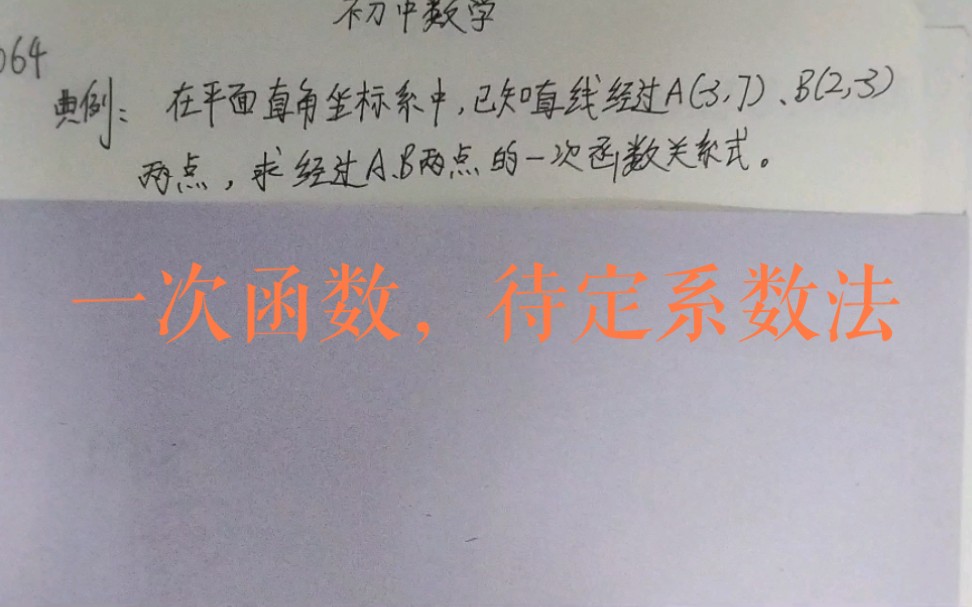 初中数学
064
典例：在平面直角坐标系中，已知直线经过A(-3,7)、B(2,-3)
两点，求经过A、B两点的一次函数关系式。
一次函数，待定系数法